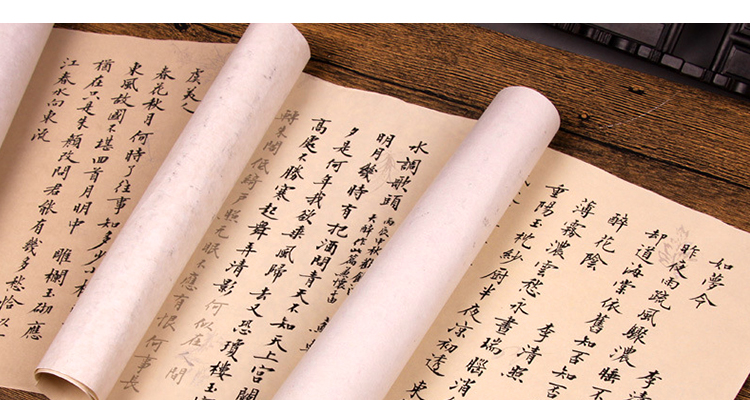 如夢令
李清
昨夜雨疏風驟濃睡不
却道海棠依舊知否知否
醉花陰 李清照
薄霧濃雲愁永晝瑞腦消
重陽玉枕紗厨半夜凉初透東
水調歌頭 丙辰中秋
大醉作此篇兼懷子由
明月幾時有把酒問青天不知天上宮闕
夕是何年我欲乘風歸去又恐瓊樓玉
高處不勝寒起舞弄清影何似在人間
轉朱閣低綺戶照無眠不應有恨何事長
虞美人
春花秋月何時了往事知多少小樓
東風故國不堪回首月明中雕欄玉砌應
猶在只是朱顏改問君能有幾多愁恰似一
江春水向東流